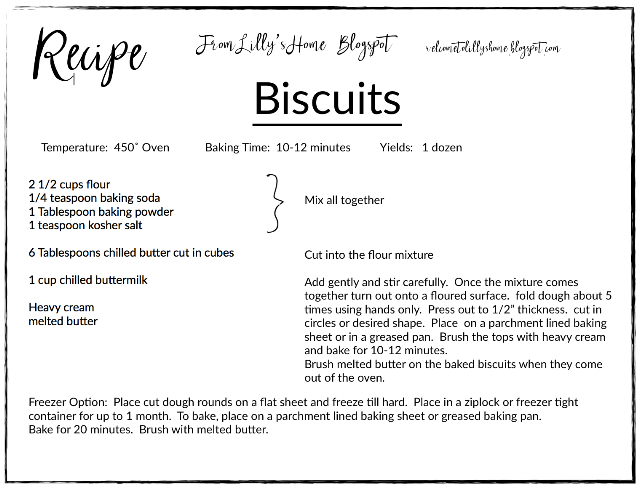 Recipe
From Lilly's Home Blogspot
welcometolillyshome.blogspot.com
Biscuits
Temperature: 450° Oven Baking Time: 10-12 minutes Yields: 1 dozen
2 1/2 cups flour
1/4 teaspoon baking soda
1 Tablespoon baking powder
1 teaspoon kosher salt
Mix all together
6 Tablespoons chilled butter cut in cubes
Cut into the flour mixture
1 cup chilled buttermilk
Heavy cream
melted butter
Add gently and stir carefully. Once the mixture comes
together turn out onto a floured surface. fold dough about 5
times using hands only. Press out to 1/2" thickness. cut in
circles or desired shape. Place on a parchment lined baking
sheet or in a greased pan. Brush the tops with heavy cream
and bake for 10-12 minutes.
Brush melted butter on the baked biscuits when they come
out of the oven.
Freezer Option: Place cut dough rounds on a flat sheet and freeze till hard. Place in a ziplock or freezer tight
container for up to 1 month. To bake, place on a parchment lined baking sheet or greased baking pan.
Bake for 20 minutes. Brush with melted butter.